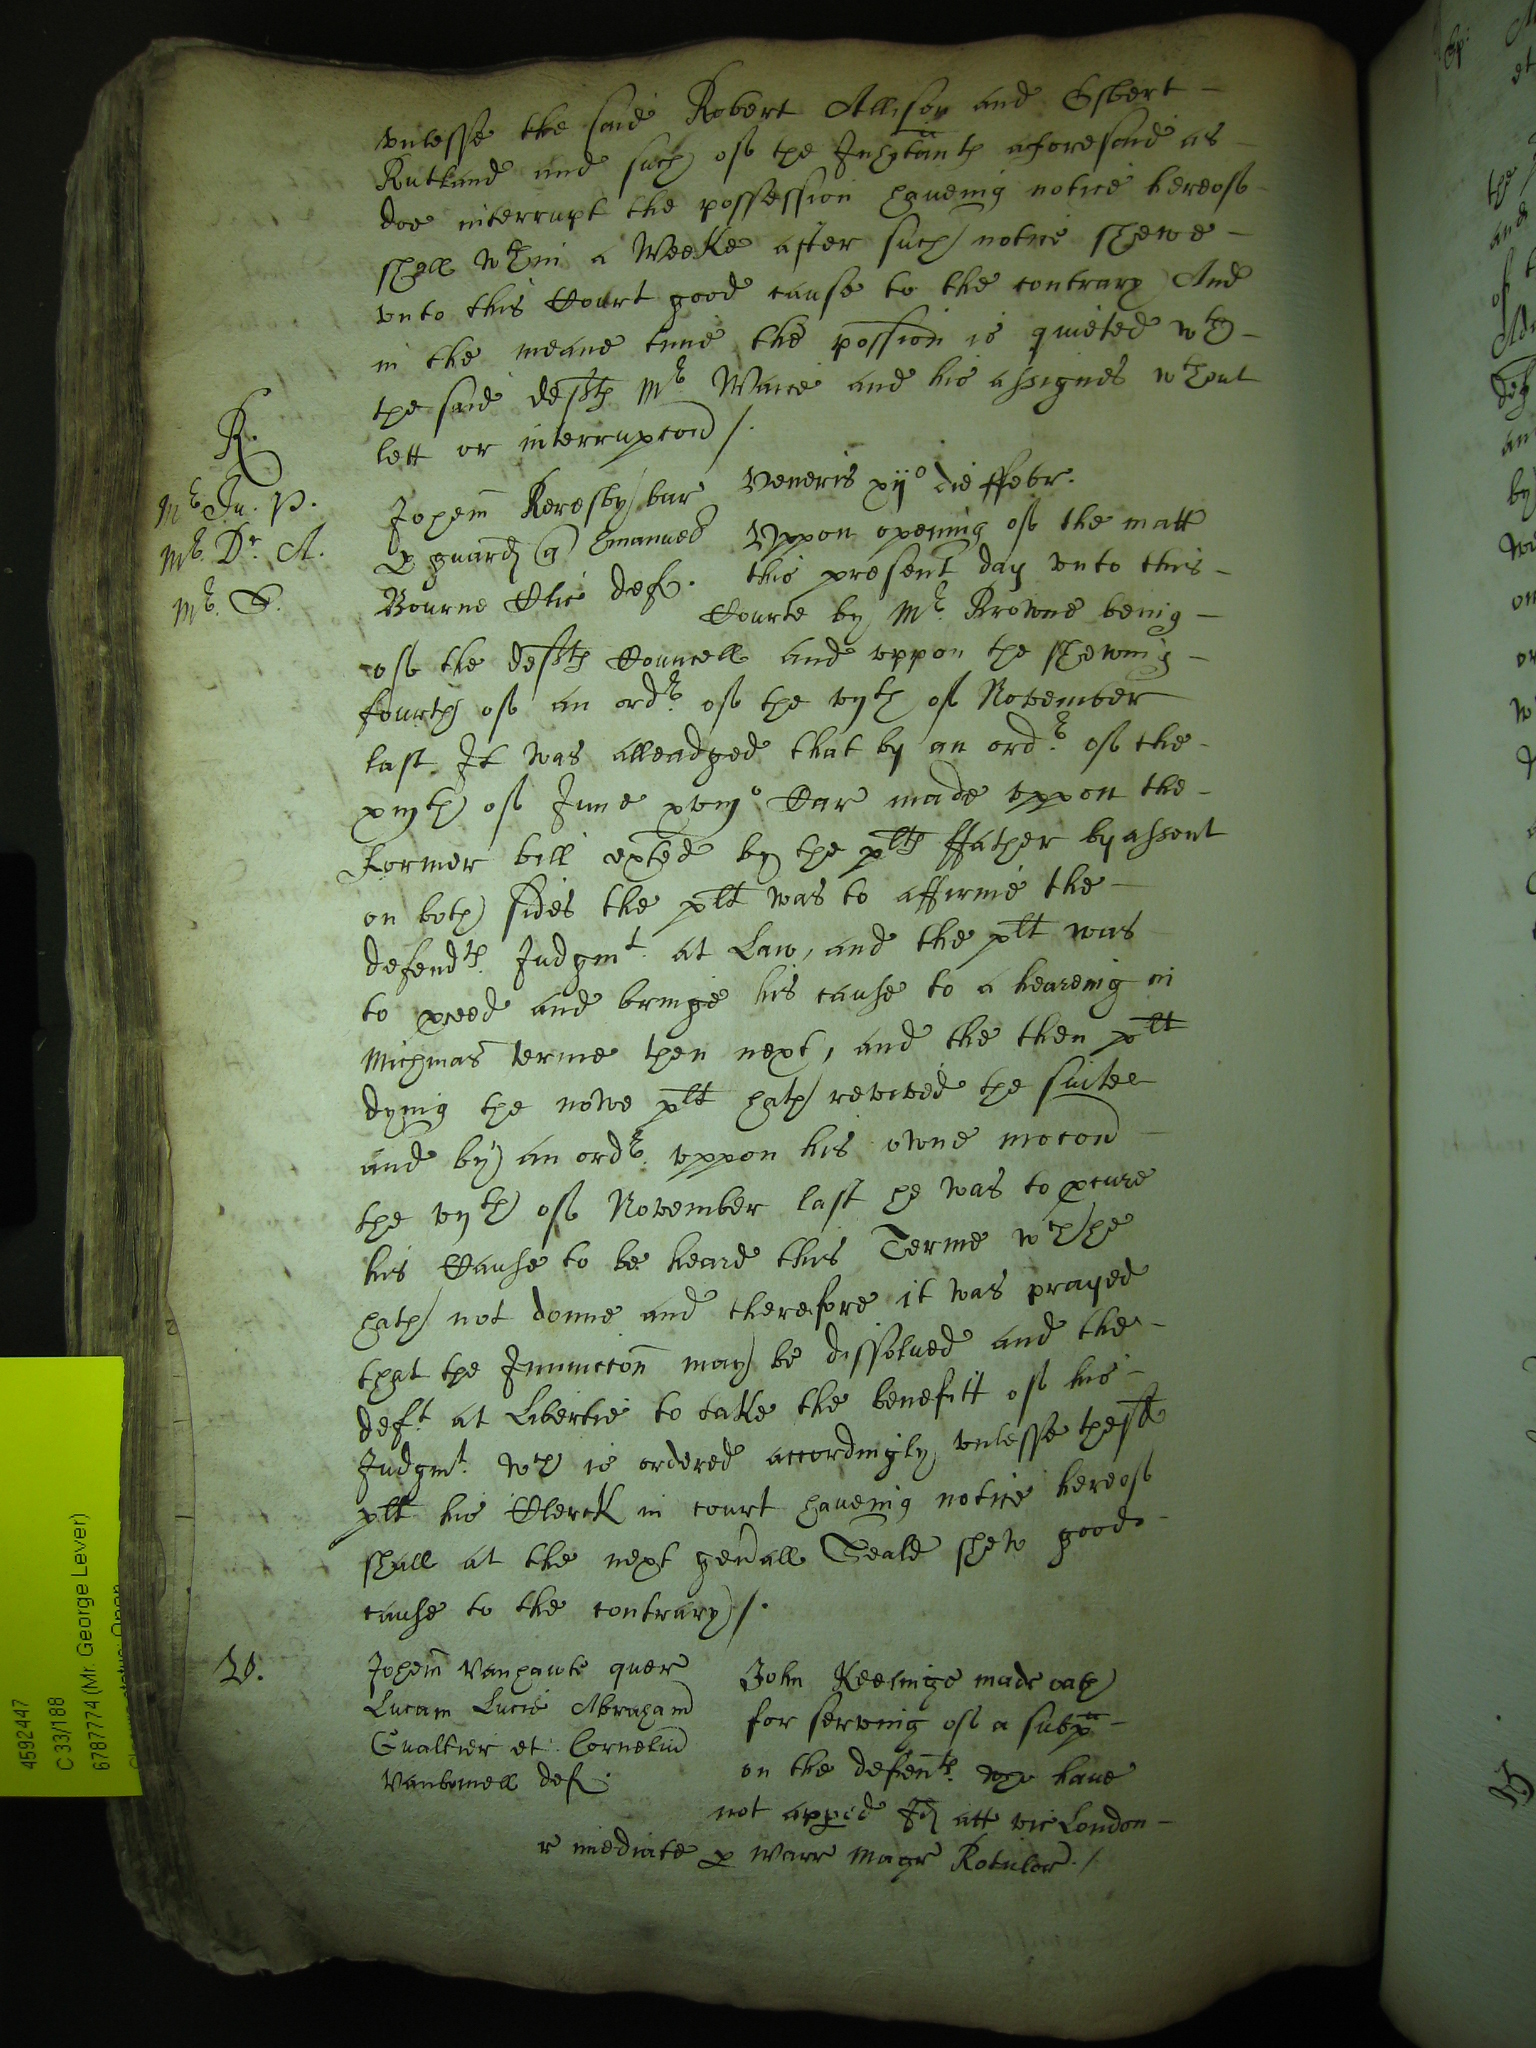 vnlesse the said Robert Allison and Esbert
Rutland and such of the Inhitants aforesaid as
doe interrupt the possession haueing notice hereof
shall wthin a Weeke after such notice shewe
vnto this Court good cause to the contrary And
in the meane tyme the possion is quieted wth
the said defts Mr Waice and his assignes wthout
lett or interrupcon /.
R.
Mr Ju. P.
Mr Dr A.
Mr S.
Johem Keresby bar
p guard q Emanuel
Bourne Clic def.
Veneris xijo die ffebr.
Vppon opening of the matt
this present day vnto this
Courte by Mr Browne being
of the defts Councell and vppon the shewing
fourth of an ordr of the vijth of November
last It was alleadged that by an ordr of the
xiijth of June xviijo Car made vppon the
Former bill exted by the plts ffather by assent
on both sides the plt was to affirme the
defendts Judgmt at Law, and the plt was
to pceed and bringe his cause to a heareing in
Michmas terme then next, and the then plt
dying the nowe plt hath revived the suite
and by an ordr vppon his owne mocon
the vijth of November last he was to pcure
his Cause to be heard this Terme wch he
hath not donne and therefore it was prayed
that the Iniunccon may be dissolued and the
deft at Libertie to take the benefitt of his
Judgmt wch is ordered accordingly vnlesse the sd
plt his Clerck in court haueing notice hereof
shall at the next genall Seale shew good
cause to the contrary /.
V.
Johem Vanhaute quer
Lucam Lucie Abraham
Gualtier et Corneliu
Vanbomell def.
John Keelinge made oath
for serving of a subpa
on the defents who have
not apped Id att vic London
r imediate p warr Magr Rotulor /
4592447
C 33/188
6787774 (Mr. George Lever)